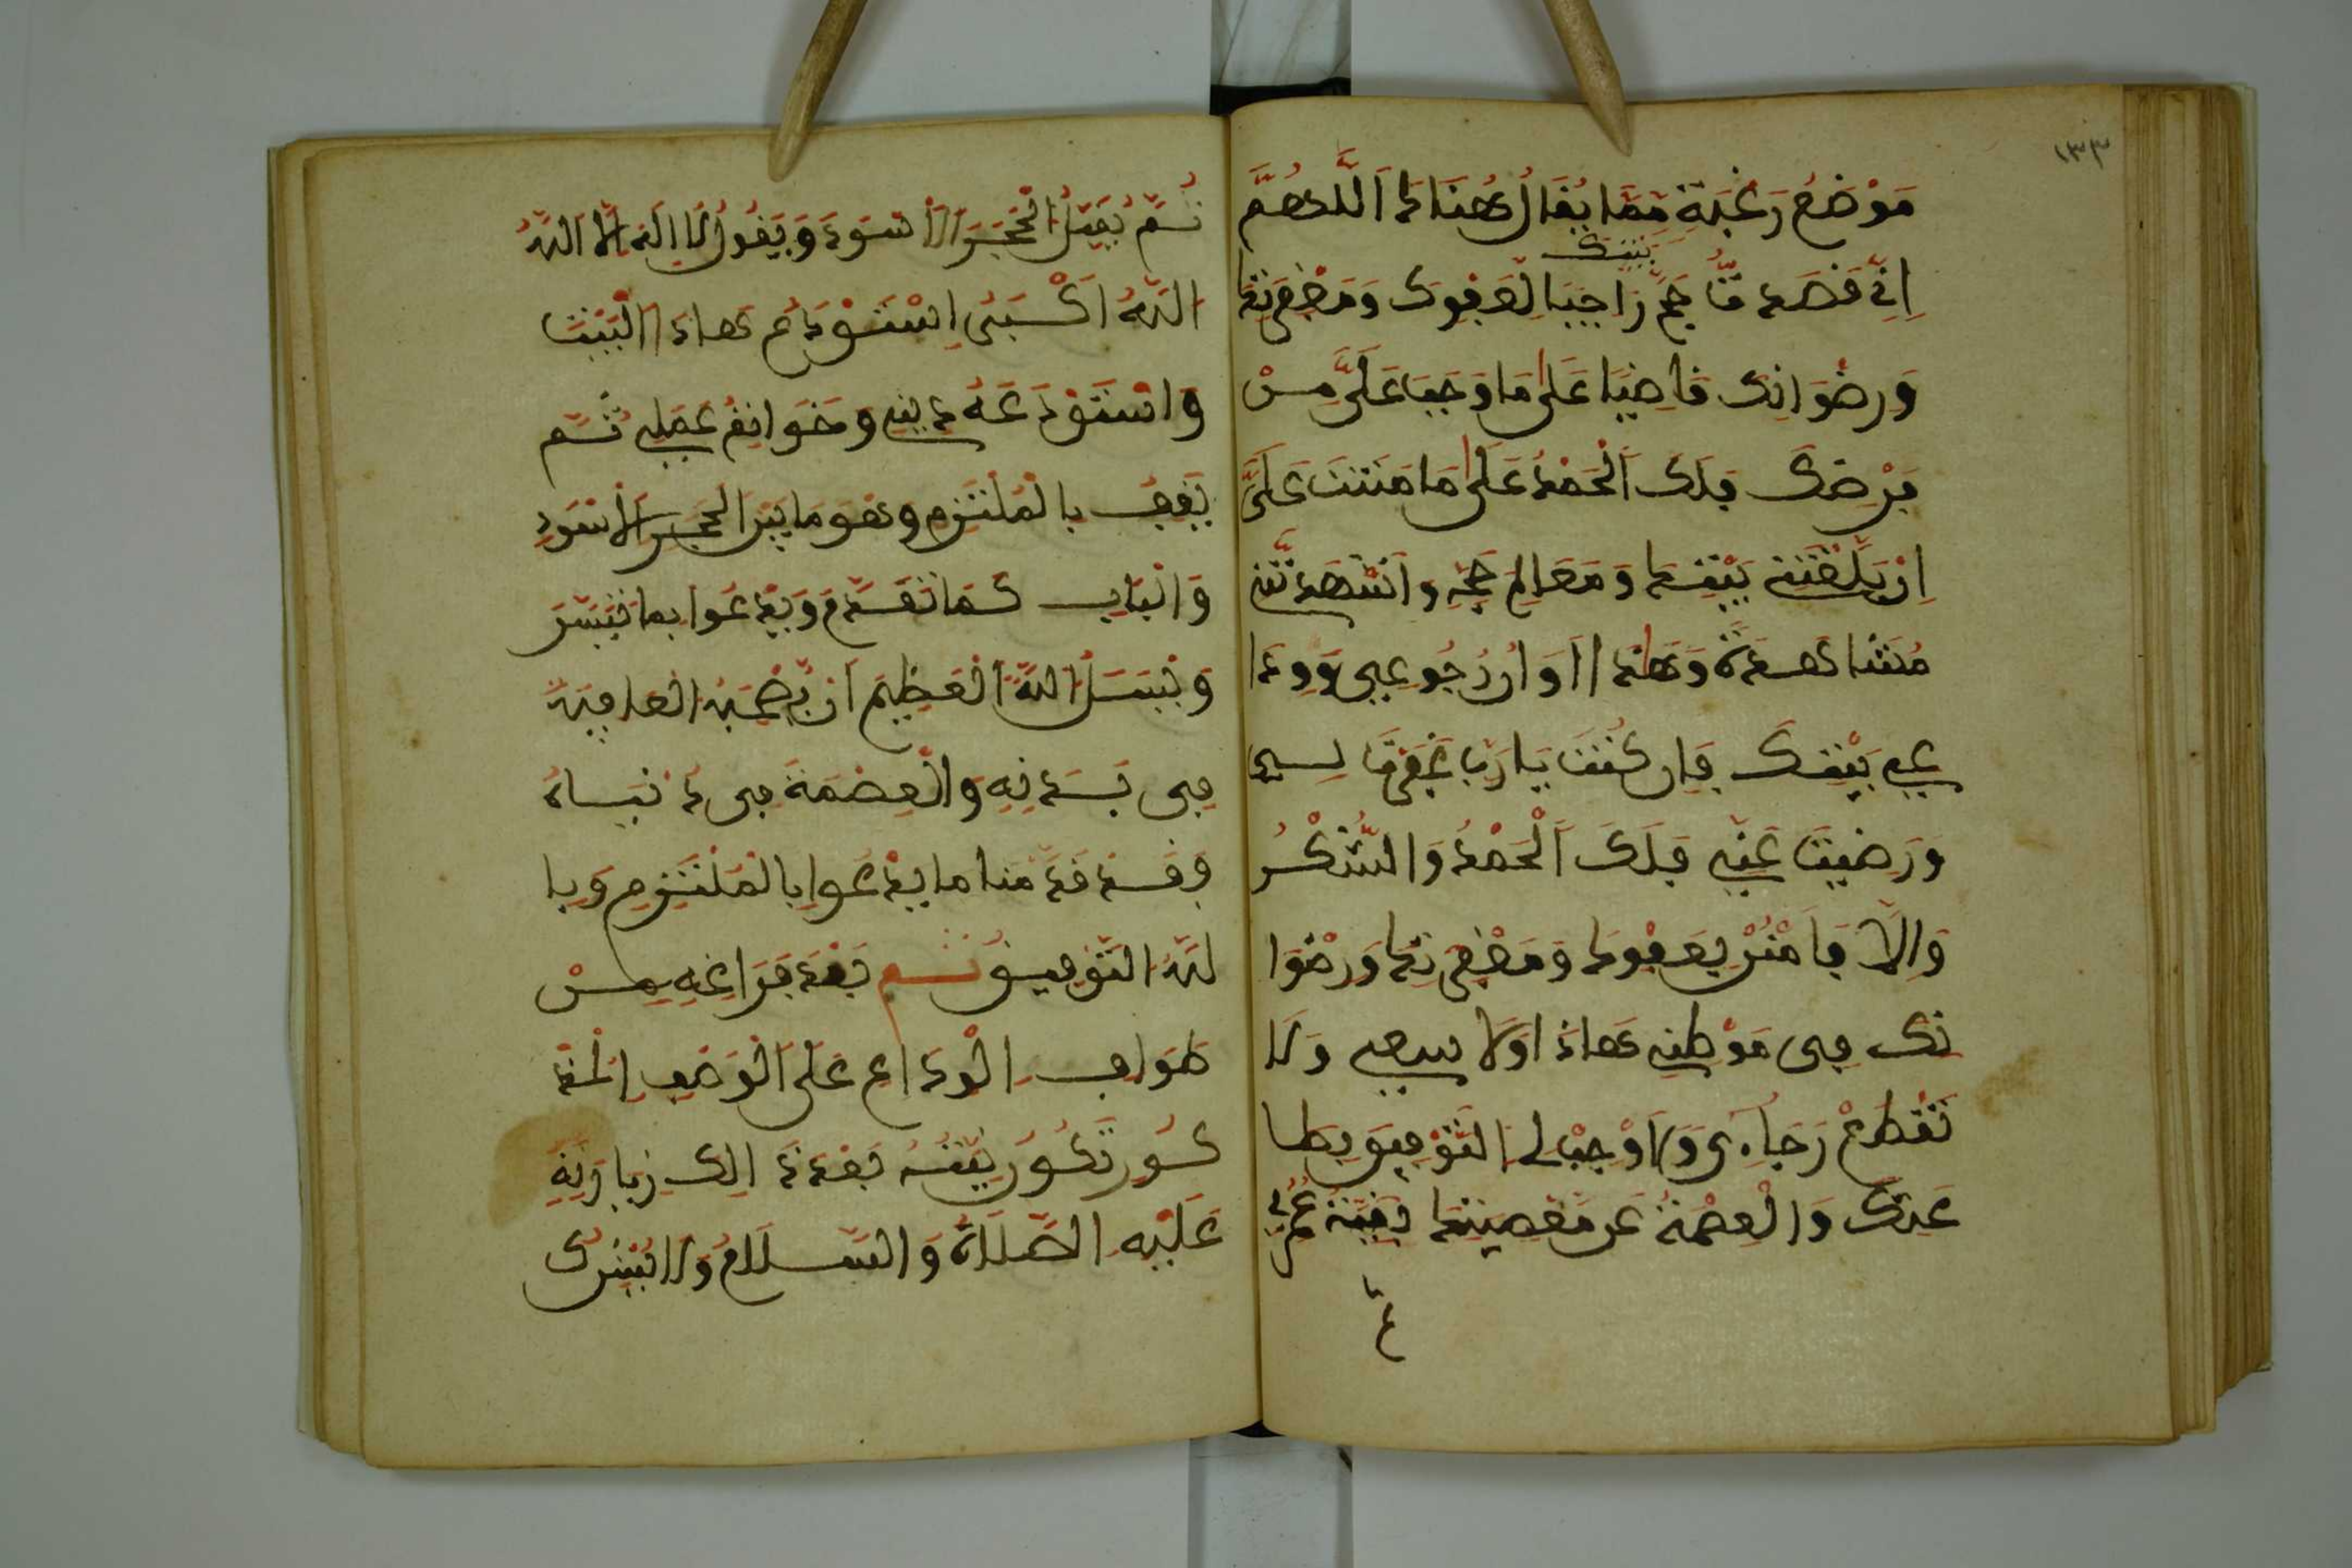 ١٣٣
مَوْضِعُ رَغْبَةٍ مِمَّا يُقَالُ هُنَاكَ اَللَّهُمَّ
بيتك
اِنِّي قصدت حَجَّ رَاجيا لعفوك ومغفرتك
وَرِضْوَانِكَ قاضيا عَلَى مَا وَجَبَ عَلَيَّ مِنْ
فَرْضِكَ فلك اَلْحَمْدُ عَلَى مَا مَننت عَلَيَّ
اِذْ بَلَّغْتَنِي بَيْتك وَمَعَالِمَ حجي وَاشْهَدْتَنِي
مَشَاهدَهُ وَهذا اَوَانُ رُجُوعِي وَوِدَا
عِي بَيْتَكَ فَإن كُنْتَ يَا رَبِّ غَفرْتَ لـي
وَرَضِيتَ عَنِّي فَلَكَ اَلْحَمْدُ وَالشُّكْرُ
وَإِلَّا فَامْنُنْ بِعَفْوِكَ وَمَغْفِرَتِكَ وَرِضْوَا
نِكَ فِي مَوْطِنِي هَذَا وَلَا
تَقْطَعْ رَجَاءِي وَاوْجِبْ لي التَّوْفِيقَ بِطَا
عَتِكَ وَالْعِصْمَةَ عَن مَعْصِيَتِكَ بَقِيَّةَ عُمُرِي
ثُمَّ يُقَبِّلُ الْحَجَرَ الْاَسْوَدَ وَيَقُولُ لَا اِلَهَ اِلَّا اللَّهُ
اللَّهُ اَكْبَرُ اِسْتَوْدَعُ هَذَا الْبَيْتَ
وَاسْتَوْدَعَهُ دِينِي وَخَوَاتِمَ عَمَلِي ثُمَّ
يَقِفُ بِالْمُلْتَزَمِ وَهُوَ مَا بَيْنَ الْحَجَرِ الْاَسْوَدِ
وَالْبَابِ كَمَا تَقَدَّمَ وَيَدْعُوا بِمَا تَيَسَّرَ
وَيَسْئَلُ اللَّهَ الْعَظِيمَ اَنْ يُصْحِبَهُ الْعَافِيَةَ
فِي بَدَنِهِ وَالْعِصْمَةَ فِي دُنْيَاهُ
وَقَدْ قَدَّمْنَا مَا يَدْعُوا بِالْمُلْتَزَمِ وَبِا
للَّهِ التَّوْفِيقُ ثُمَّ بَعْدَ فَرَاغِهِ مِنْ
طَوَافِ الْوَدَاعِ عَلَى الْوَصْفِ الْمَذْ
كُورِ تَكُونُ نِيَّتُهُ بَعْدَ ذَلِكَ زِيَارَتِهِ
عَلَيْهِ الصَّلَاةُ وَالسَّلَامُ وَلَا يُشْرِكُ